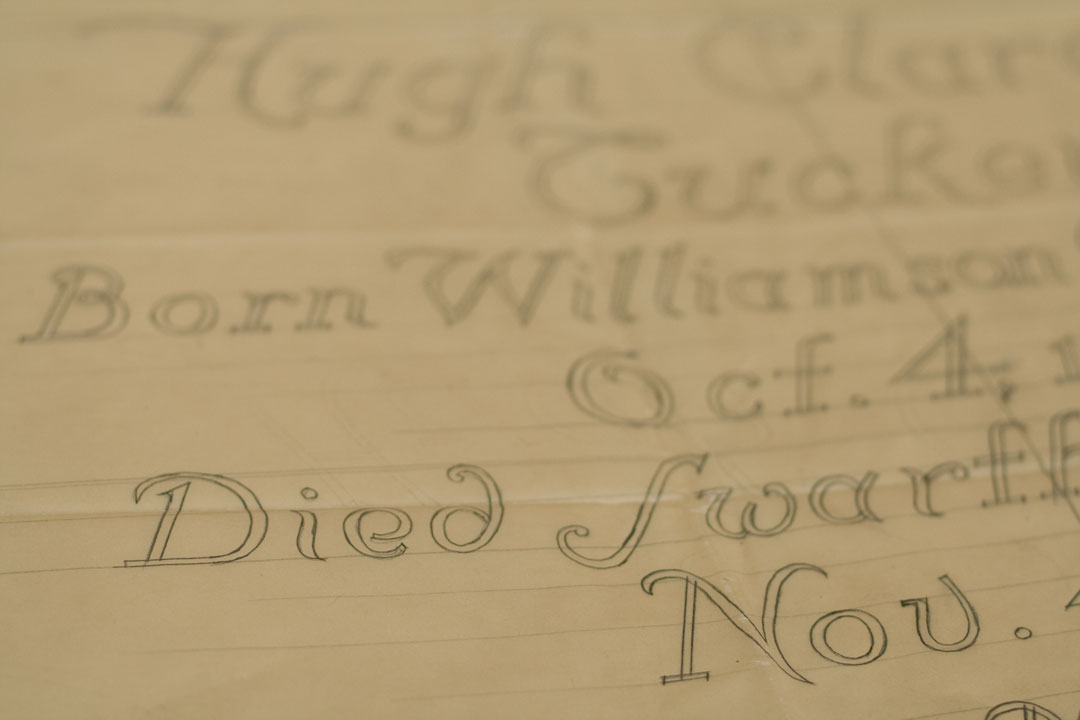 Hugh Clar
Tucker
Born Williamson
Oct. 4, 1
Died Swart
Nov.